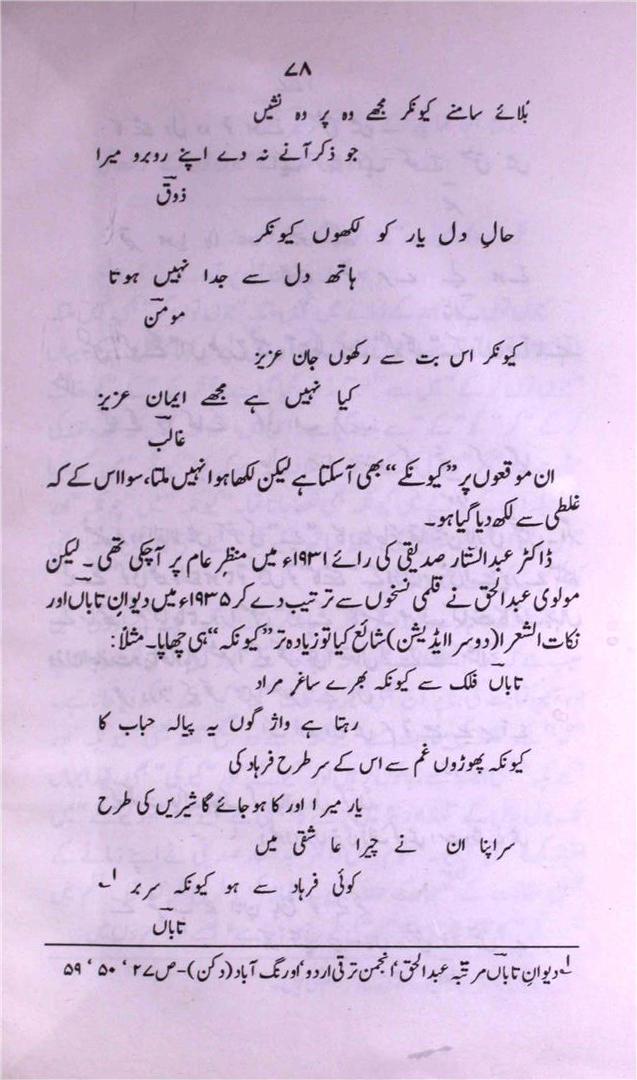 ۷۸
بُلائے سامنے کیونکر مجھے وہ پر وہ نشیں
جو ذکر آنے نہ دے اپنے روبرو میرا
ذوقؔ
حالِ دل یار کو لکھوں کیونکر
ہاتھ دل سے جدا نہیں ہوتا
مومنؔ
کیونکر اس بت سے رکھوں جان عزیز
کیا نہیں ہے مجھے ایمان عزیز
غالبؔ
ان موقعوں پر ”کیونکے“ بھی آ سکتا ہے لیکن لکھا ہوا نہیں ملتا، سوا اس کے کہ
غلطی سے لکھ دیا گیا ہو۔
ڈاکٹر عبدالستار صدیقی کی رائے ۱۹۳۱ء میں منظر عام پر آ چکی تھی۔ لیکن
مولوی عبدالحق نے قلمی نسخوں سے ترتیب دے کر ۱۹۳۵ء میں دیوانِ تاباںؔ اور
نکات الشعرا (دوسرا ایڈیشن) شائع کیا تو زیادہ تر ”کیونکہ“ ہی چھاپا۔ مثلاً:
تاباںؔ فلک سے کیونکہ بھرے ساغر مراد
رہتا ہے واژ گوں یہ پیالہ حباب کا
کیونکہ پھوڑوں غم سے اس کے سر طرح فرہاد کی
یار میرا اور کا ہو جائے گا شیریں کی طرح
سر اپنا ان نے چیرا عاشقی میں
کوئی فرہاد سے ہو کیونکہ سربر ۱؎
تاباںؔ
۱؎ دیوانِ تاباںؔ مرتبہ عبدالحق‘ انجمن ترقی اردو‘ اورنگ آباد (دکن)۔ ص ۲۷‘ ۵۰‘ ۵۹